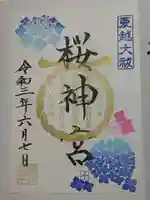 夏越大祓
桜神宮
令和三年六月七日